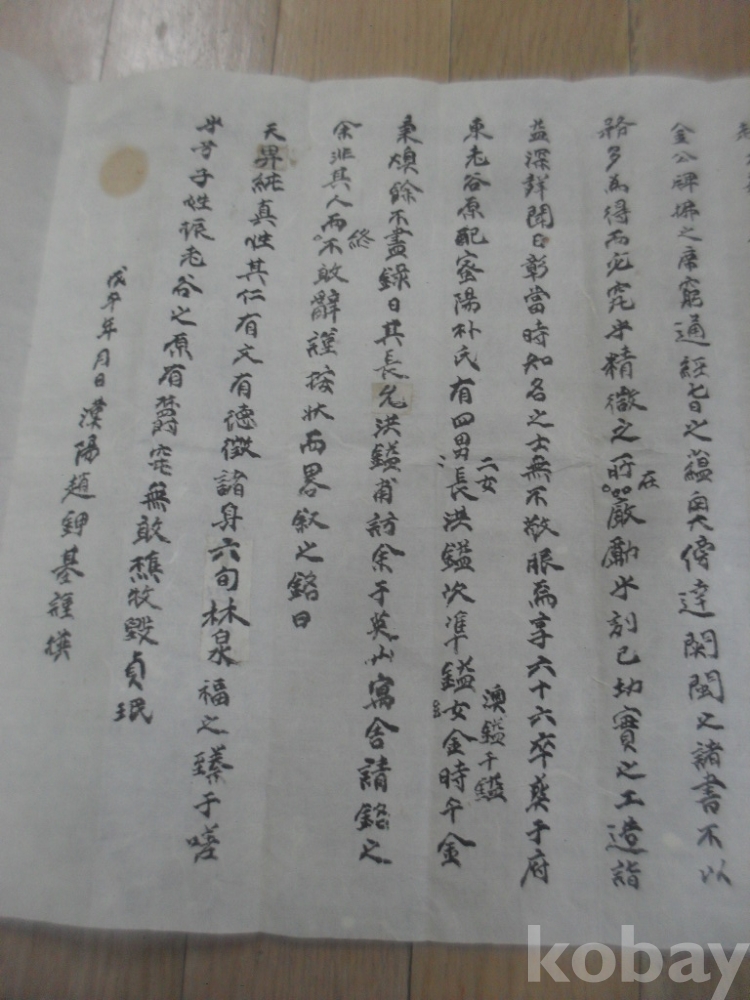 金公禪㙷之席窮通經旨之蘊奧傍達閩之諸書不以
務多為得而必究乎精微之所在嚴勵乎刻已切實之工造詣
益深詳聞日彰當時知名之士無不敬服焉享六十六卒葬于府
東老谷原配密陽朴氏有四男二女長洪鎰次準鎰澳鎰千鎰女金時午金
秉煥餘不盡錄日其長允洪鎰甫訪余于英山寓舍請銘之
余非其人而終不敢辭謹按狀而畧叙之銘曰
天昇純真性其仁有文有德徵諸身六旬林泉福之臻于嗟
乎子性振老谷之原有菀無敢樵牧毀貞珉
戊午年月日漢陽趙鉀基謹撰
kobay